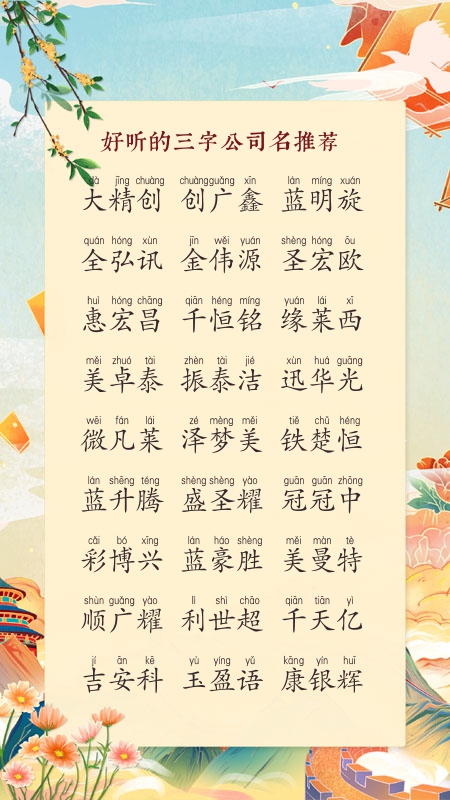 好听的三字公司名推荐
dà jīng chuàng chuàng guǎng xīn lán míng xuán
大精创 创广鑫 蓝明旋
quán hóng xùn jīn wěi yuán shèng hóng ōu
全弘讯 金伟源 圣宏欧
huì hóng chāng qiān héng míng yuán lái xī
惠宏昌 千恒铭 缘莱西
měi zhuó tài zhèn tài jié xùn huá guāng
美卓泰 振泰洁 迅华光
wēi fán lái zé mèng měi tiě chǔ héng
微凡莱 泽梦美 铁楚恒
lán shēng téng shèng shèng yào guān guān zhōng
蓝升腾 盛圣耀 冠冠中
cǎi bó xīng lán háo shèng měi màn tè
彩博兴 蓝豪胜 美曼特
shùn guǎng yào lì shì chāo qiān tiān yì
顺广耀 利世超 千天亿
jí ān kē yù yíng yǔ kāng yín huī
吉安科 玉盈语 康银辉